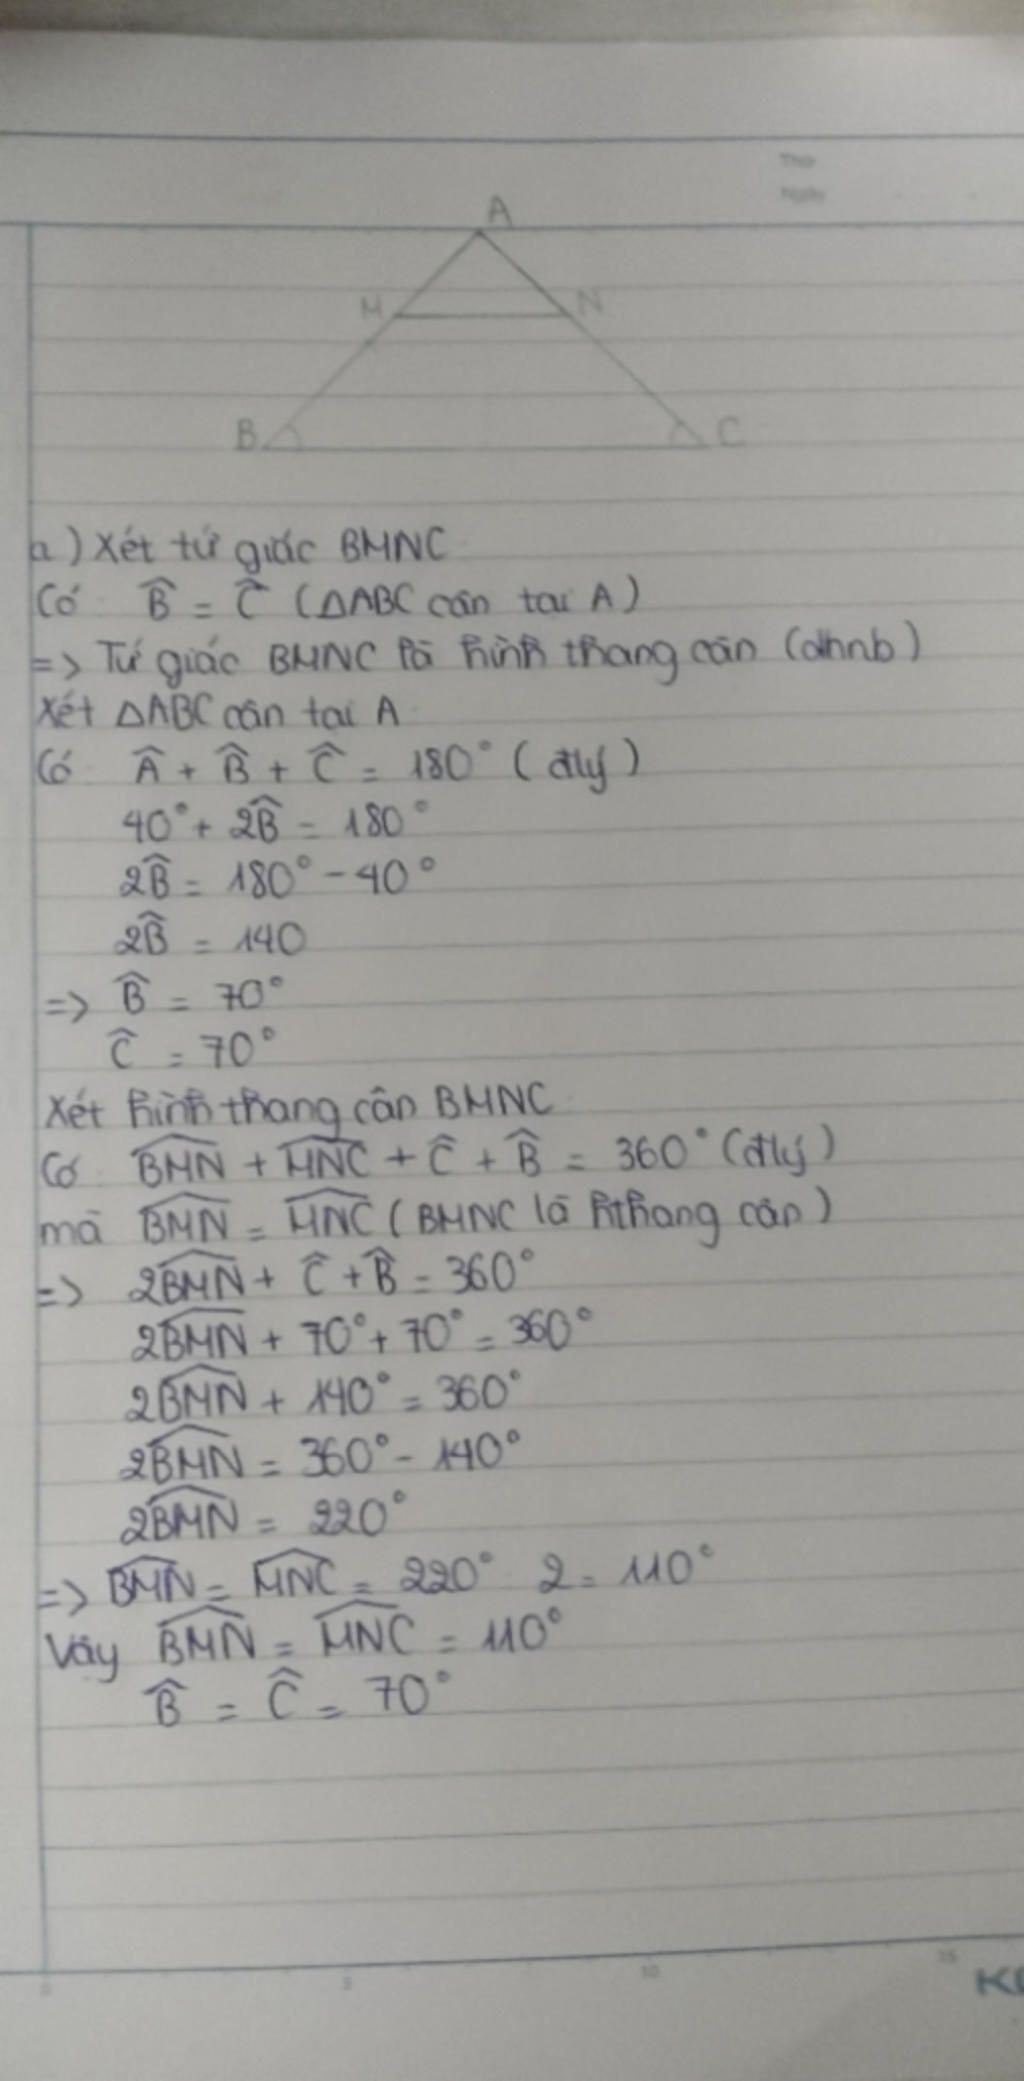 Thứ
Ngày
A
M N
B C
a) Xét tứ giác BMNC
Có B̂ = Ĉ (ΔABC cân tại A)
=> Tứ giác BMNC là hình thang cân (dhnb)
Xét ΔABC cân tại A
Có Â + B̂ + Ĉ = 180° (đlý)
40° + 2B̂ = 180°
2B̂ = 180° - 40°
2B̂ = 140
=> B̂ = 70°
Ĉ = 70°
Xét hình thang cân BMNC
Có \widehat{BMN} + \widehat{MNC} + Ĉ + B̂ = 360° (đlý)
mà \widehat{BMN} = \widehat{MNC} (BMNC là hthang cân)
=> 2\widehat{BMN} + Ĉ + B̂ = 360°
2\widehat{BMN} + 70° + 70° = 360°
2\widehat{BMN} + 140° = 360°
2\widehat{BMN} = 360° - 140°
2\widehat{BMN} = 220°
=> \widehat{BMN} = \widehat{MNC} = 220° 2 = 110°
Vậy \widehat{BMN} = \widehat{MNC} = 110°
B̂ = Ĉ = 70°
0 5 10 15